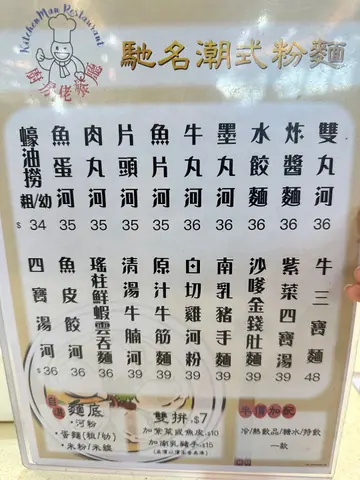 KitchenMan Restaurant
廚房佬餐廳
馳名潮式粉麵
蠔油撈粗/幼 $34
魚蛋河 35
肉丸河 35
片頭河 35
魚片河 35
牛丸河 36
墨丸河 36
水餃麵 36
炸醬麵 36
雙丸河 36
四寶湯河 $36
魚皮餃河 36
瑤柱鮮蝦雲吞麵 36
清湯牛腩河 39
原汁牛筋麵 39
白切雞河粉 39
南乳豬手麵 39
沙嗲金錢肚麵 39
紫菜四寶湯 39
牛三寶麵 48
自選麵底
・河粉
・蛋麵(粗/幼)
・米粉/米線
雙拼 $7
加紫菜或魚皮 $10
加南乳豬手 $15
半價加配
冷/熱飲品/糖水/特飲
一款